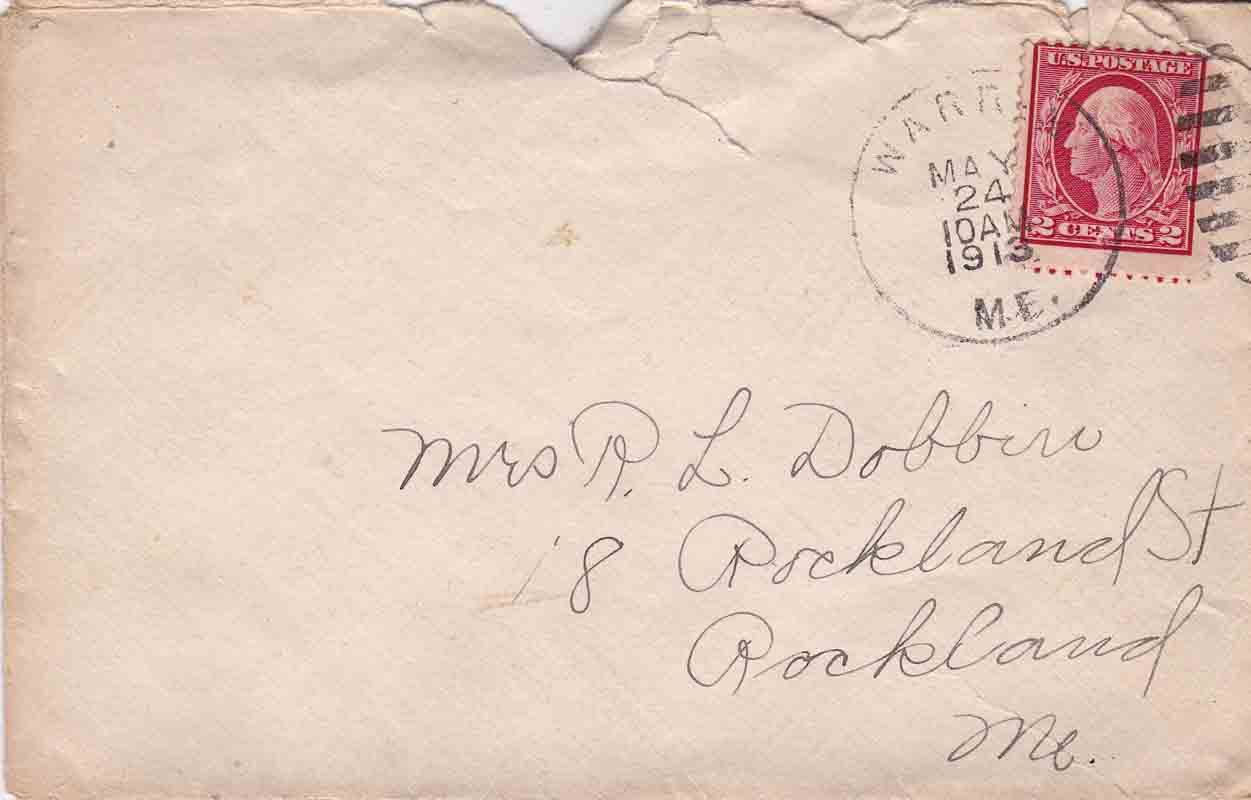 U.S. POSTAGE
2 CENTS 2
MAY
24
10 AM
1913
ME.
Mrs R. L. Dobbin
18 Rockland St
Rockland
Me.